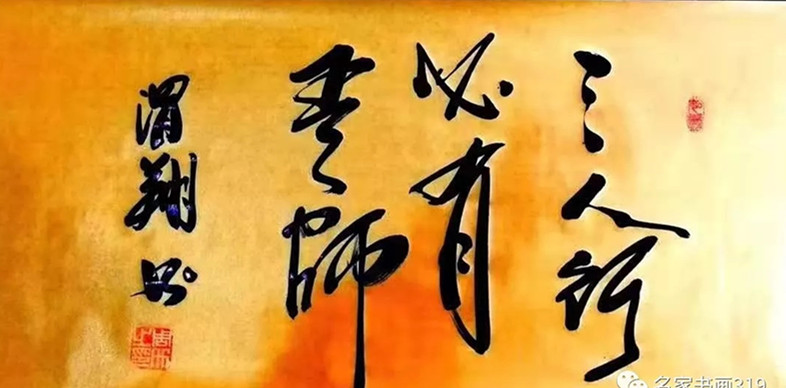 三人行
必有
吾師
渭翔
名家书画319